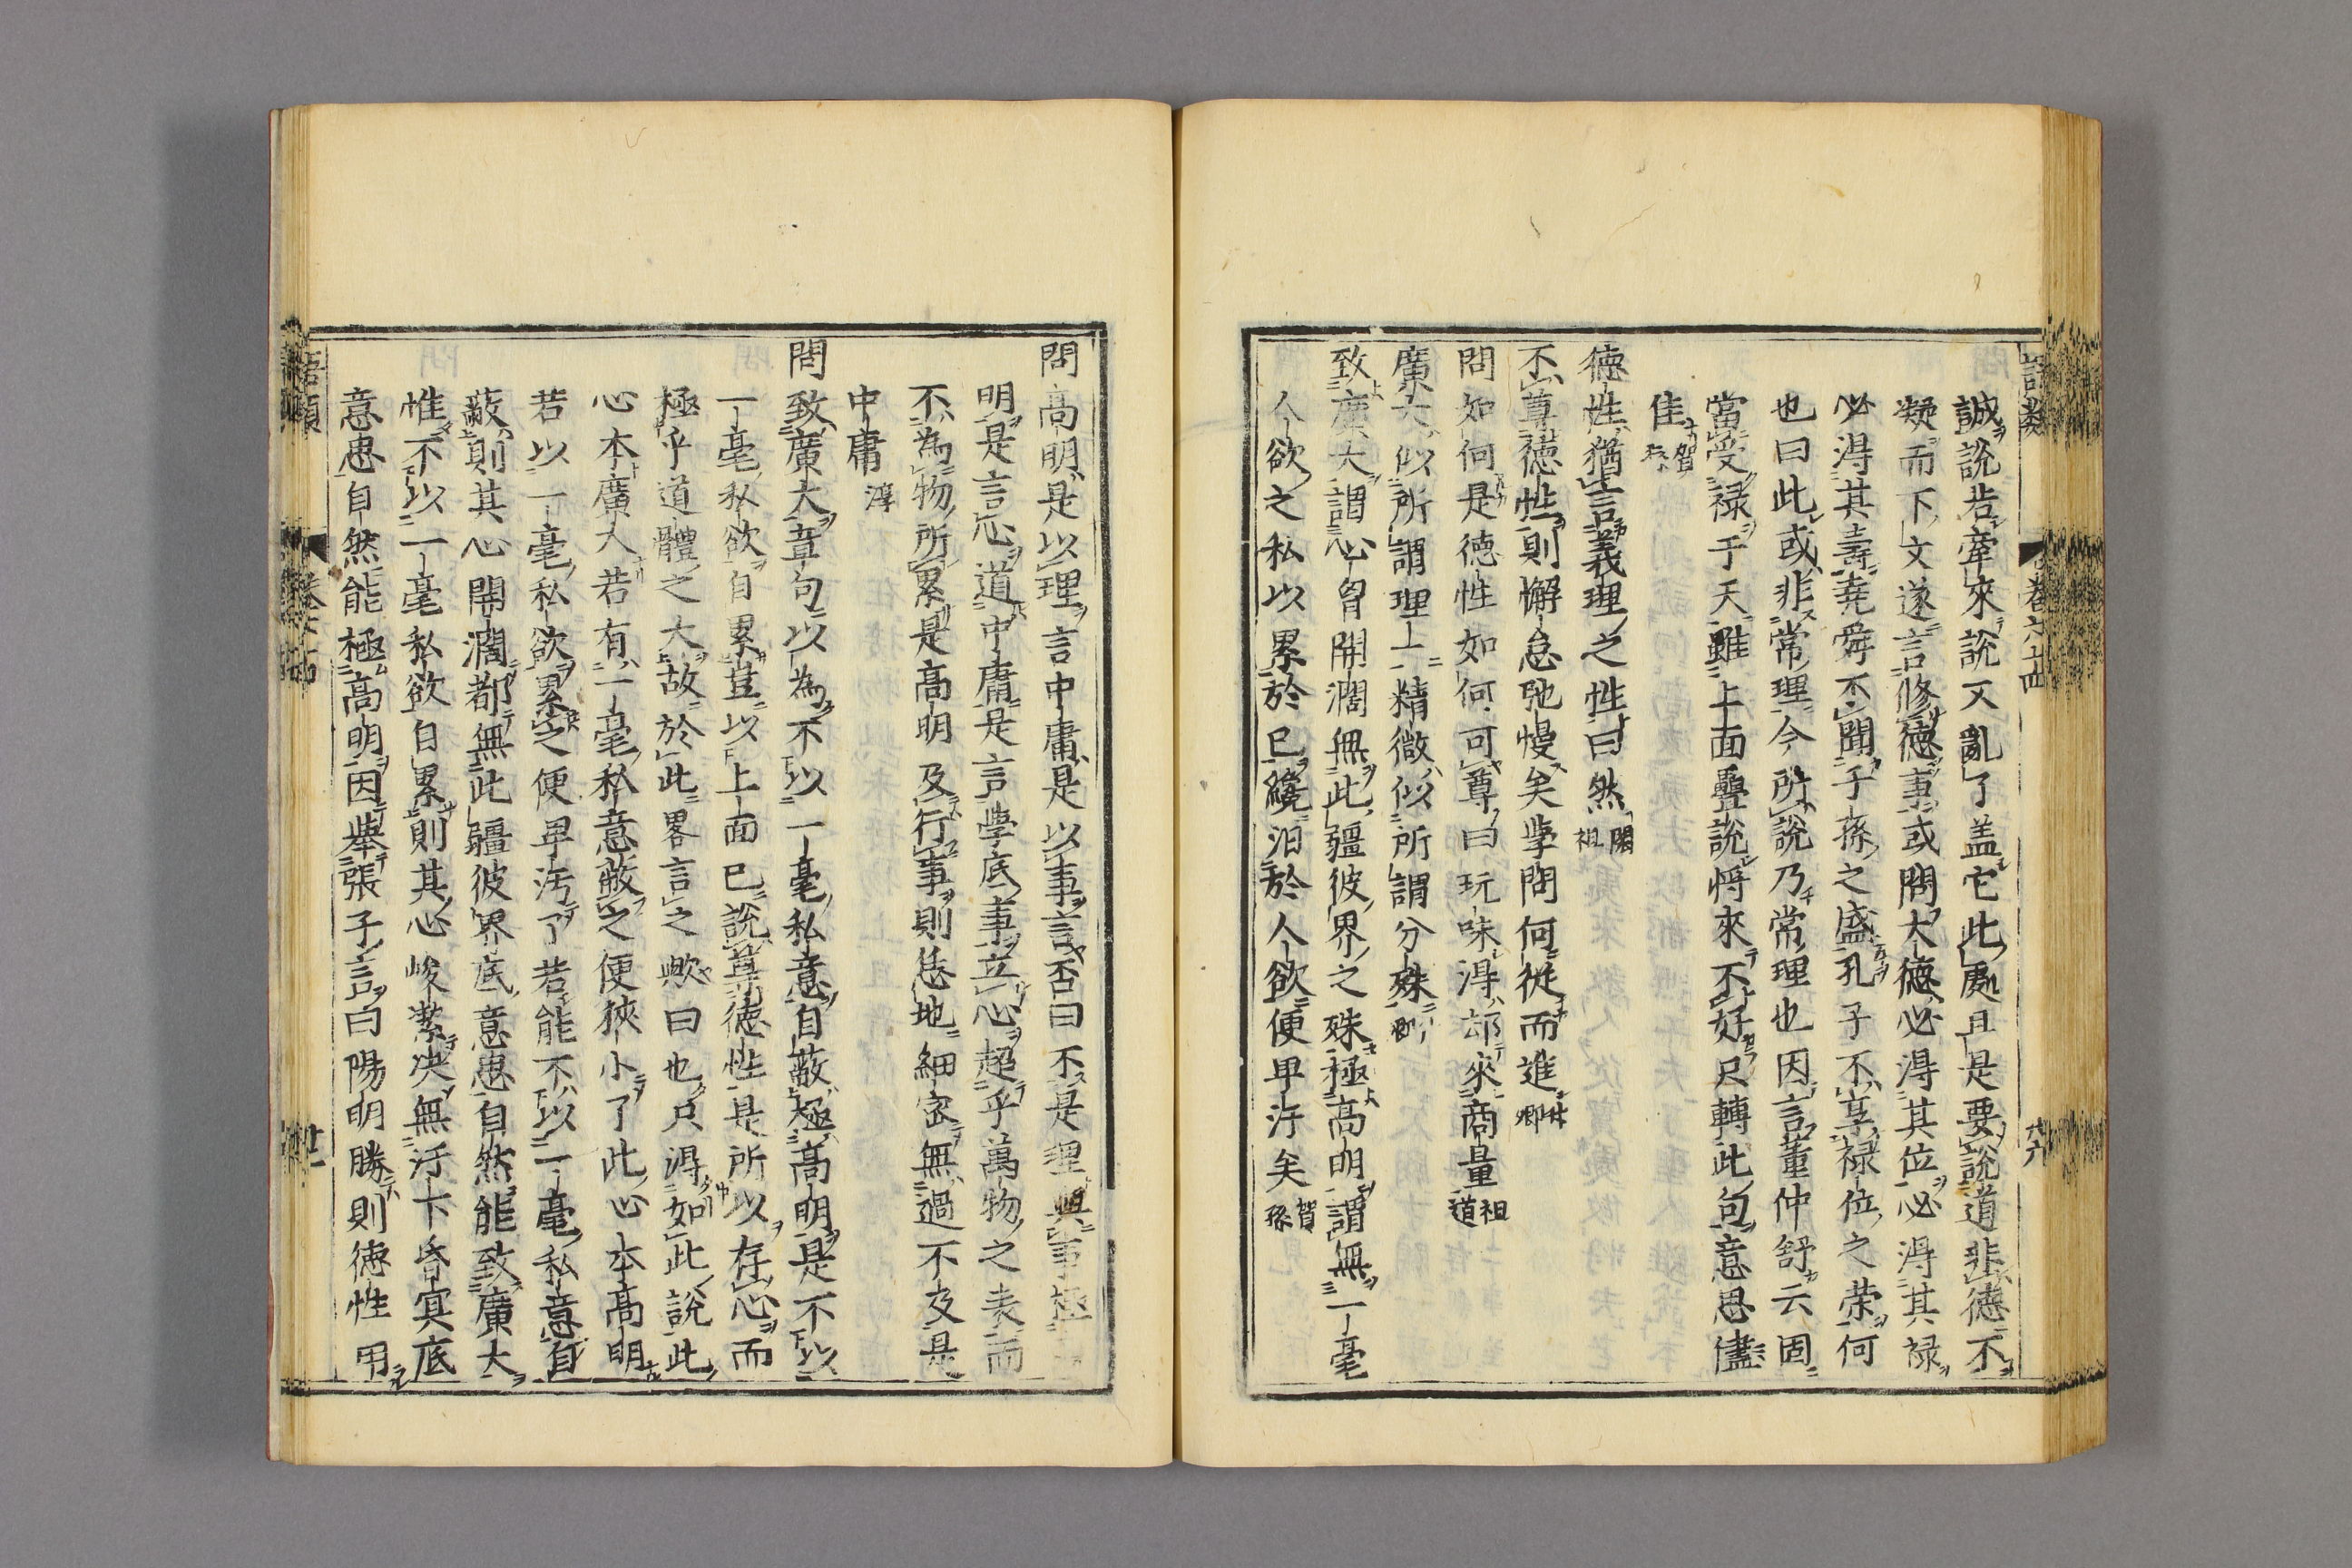 誠說若牽來說又亂了盖它此處且是要說道非德不
凝而下文遂言修德事或問大德必得其位必得其祿
必得其壽堯舜不聞子孫之盛孔子不享祿位之荣何
也曰此或非常理今所說乃常理也因言董仲舒云固
當受祿于天雖上面疊說將來不好只轉此句意思儘
佳 賀孫
德性猶言義理之性曰然 閎祖
不尊德性則懈怠弛慢矣學問何從而進
問如何是德性如何可尊曰玩味得却來商量 祖道
廣大似所謂理一精微似所謂分殊
致廣大謂心胷開濶無此疆彼界之殊極高明謂無一毫
人欲之私以累於已纔汨於人欲便卑汙矣 賀孫
語類 卷六十四
問高明是以理言中庸是以事言否曰不是理與事極高
明是言心道中庸是言學底事立心超乎萬物之表而
不為物所累是高明及行事則恁地細密無過不及是
中庸 淳
問致廣大章句以為不以一毫私意自蔽極高明是不以
一毫私欲自累豈以上面已說尊德性是所以存心而
極乎道體之大故於此畧言之歟曰也只得如此說此
心本廣大若有一毫私意蔽之便狹小了此心本高明
若以一毫私欲累之便卑汚了若能不以一毫私意自
蔽則其心開濶都無此疆彼界底意思自然能致廣大
惟不以一毫私欲自累則其心峻潔决無汙下昏冥底
意思自然能極高明因舉張子言曰陽明勝則德性用
語類 卷六十四